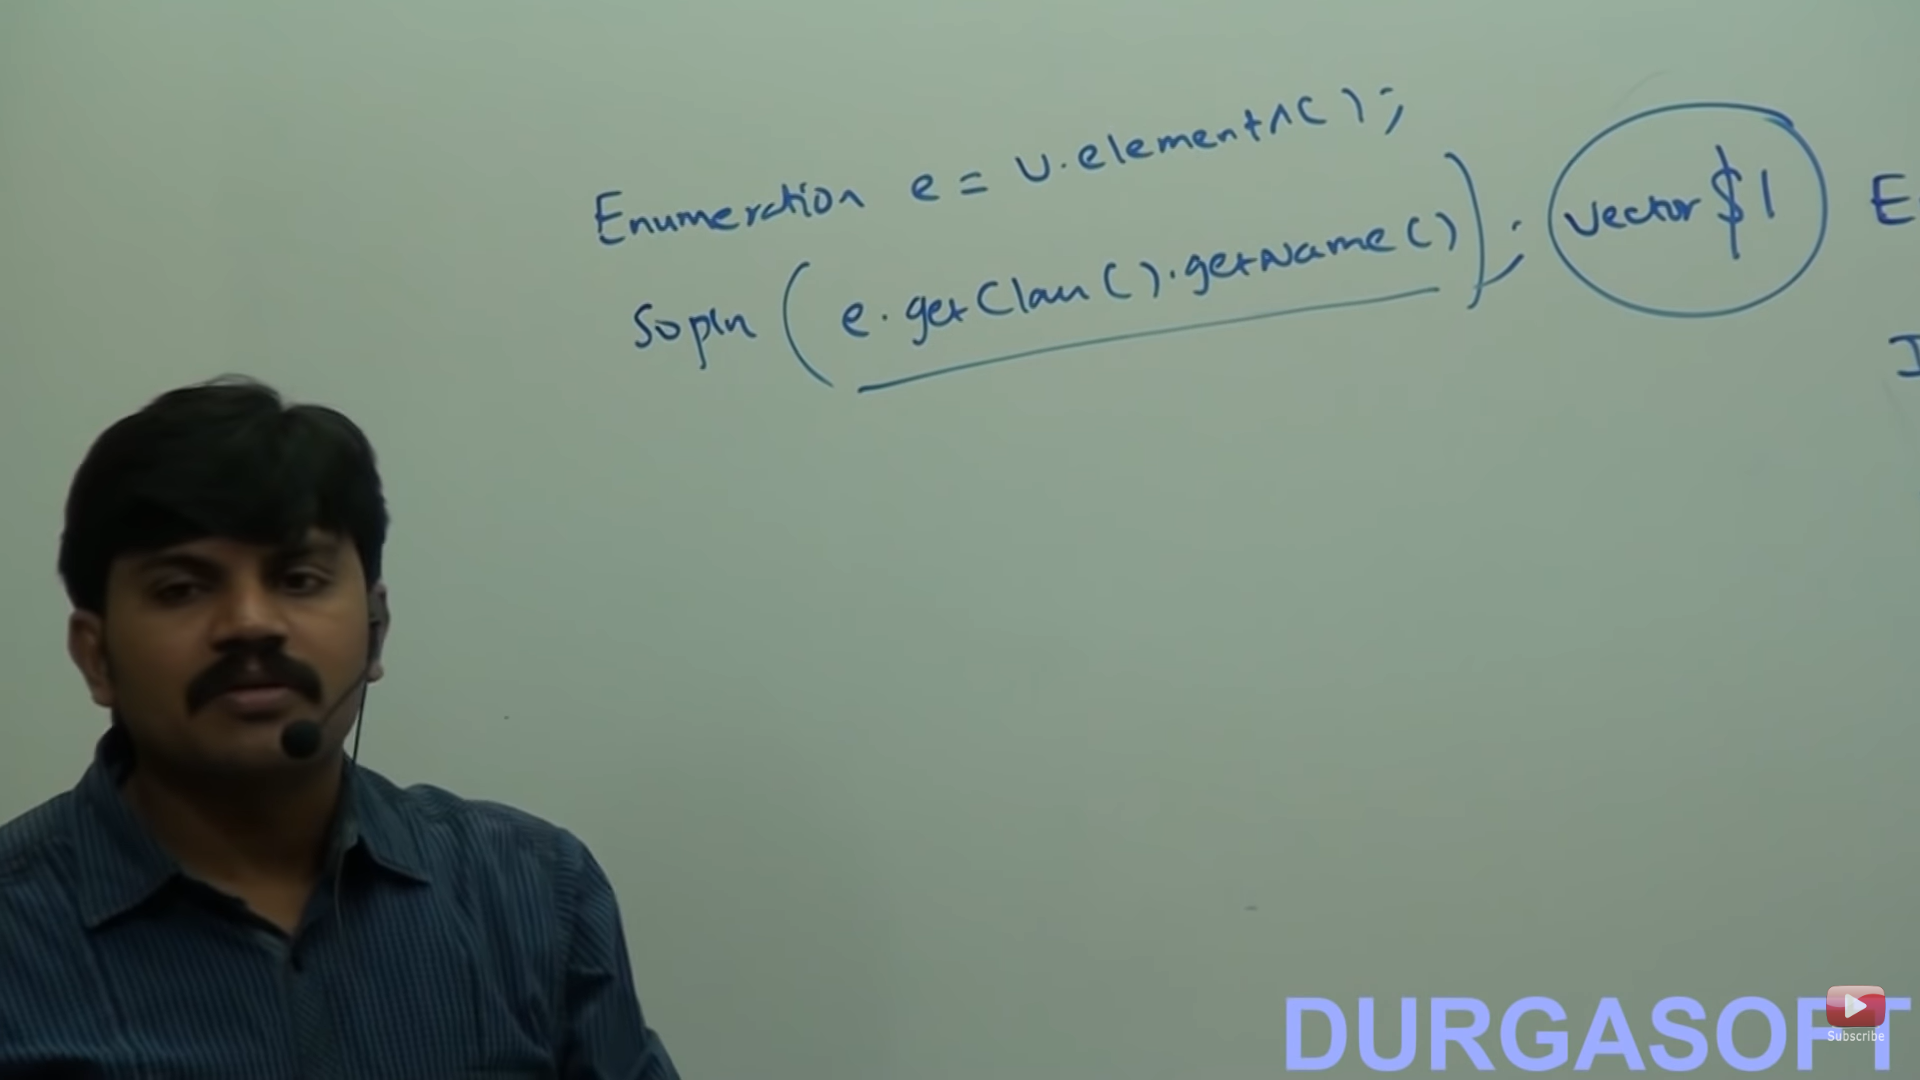 Enumeration e = v.elements();
Sopln (e.getClass().getName());
Vector$1
E
I
DURGASOFT
Subscribe